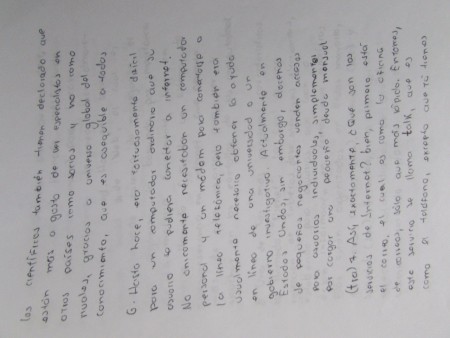 los científicos también tienen declarado que
están más a gusto de un experimentos en
otros países como socios y no como
rivales, gracias a universo global del
conocimiento, que es asequible a todos
6. Hasta hace, era tortuosamente difícil
para un computador ordinario que su
usuario lo pudiera conectar a internet.
No únicamente necesitaban un computador
personal y un módem para conectarse a
la línea telefónica, pero también era
usualmente necesario obtener la ayuda
en línea de una universidad o un
gobierno investigativo. Actualmente en
Estados Unidos, sin embargo, docenas
de pequeños negociantes venden accesos
para usuarios individuales, simplemente
por cargar una pequeña deuda mensual
7. Así exactamente, ¿Que son los
servicios de Internet? bien, primero está
el correo, el cual es como la oficina
de correos, solo que más rápido. Entonces,
este servicio se llama talk, que es
como el teléfono, excepto que tú tienes